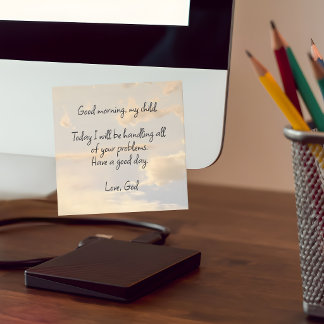 Good morning, my child
Today I will be handling all
of your problems.
Have a good day.
Love, God